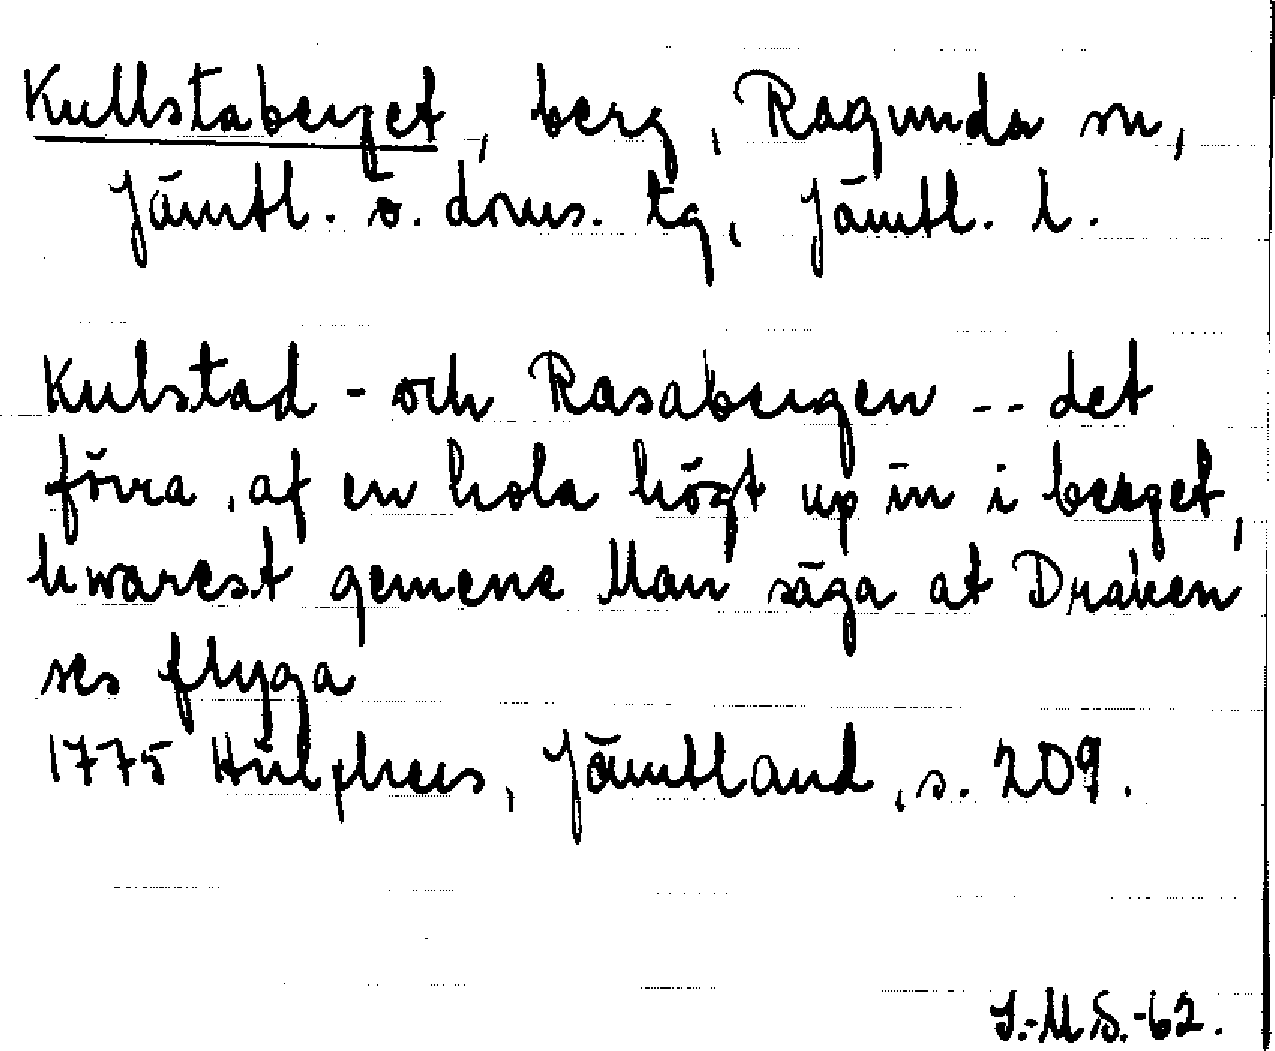 Kullstaberget, berg, Ragunda sn,
Jämtl. ö. doms. tg, Jämtl. l.
Kulstad- och Rasabergen -- det
förra, af en hola högt up in i berget,
hwarest gemene Man säga at Draken
ses flyga
1775 Hülphers, Jämtland, s. 209.
I.-M S.-62.